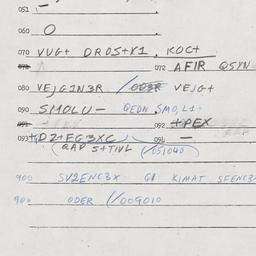 051 —
060 O
070 VUG+ DROS+Y1. KOC+
072 AFIR QSYN
080 VEJG1N3R / ODER VEJG+
090 SMOLU— QEDN, SMO, L1+
092 +PEX
093 +DZ+FG3XC
QAP S+TIVL (/051040) —
900 SV2ENC3X G1 KIMAT SFENC3
900 ODER (/009010